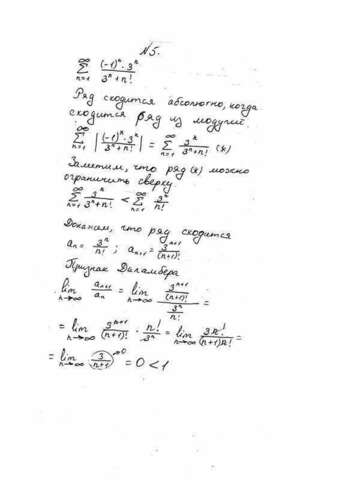 №5.
∞ ∑ n=1 (-1)ⁿ · 3ⁿ / (3ⁿ + n!)
Ряд сходится абсолютно, когда
сходится ряд из модулей.
∞ ∑ n=1 |(-1)ⁿ · 3ⁿ / (3ⁿ + n!)| = ∞ ∑ n=1 3ⁿ / (3ⁿ + n!) (*)
Заметим, что ряд (*) можно
ограничить сверху
∞ ∑ n=1 3ⁿ / (3ⁿ + n!) < ∞ ∑ n=1 3ⁿ / n!
Докажем, что ряд сходится
aₙ = 3ⁿ / n! ; aₙ₊₁ = 3ⁿ⁺¹ / (n+1)!
Признак Даламбера
lim n→∞ aₙ₊₁ / aₙ = lim n→∞ (3ⁿ⁺¹ / (n+1)!) / (3ⁿ / n!) =
= lim n→∞ 3ⁿ⁺¹ / (n+1)! · n! / 3ⁿ = lim n→∞ 3n! / (n+1)n! =
= lim n→∞ 3 / (n+1) →0 = 0 < 1